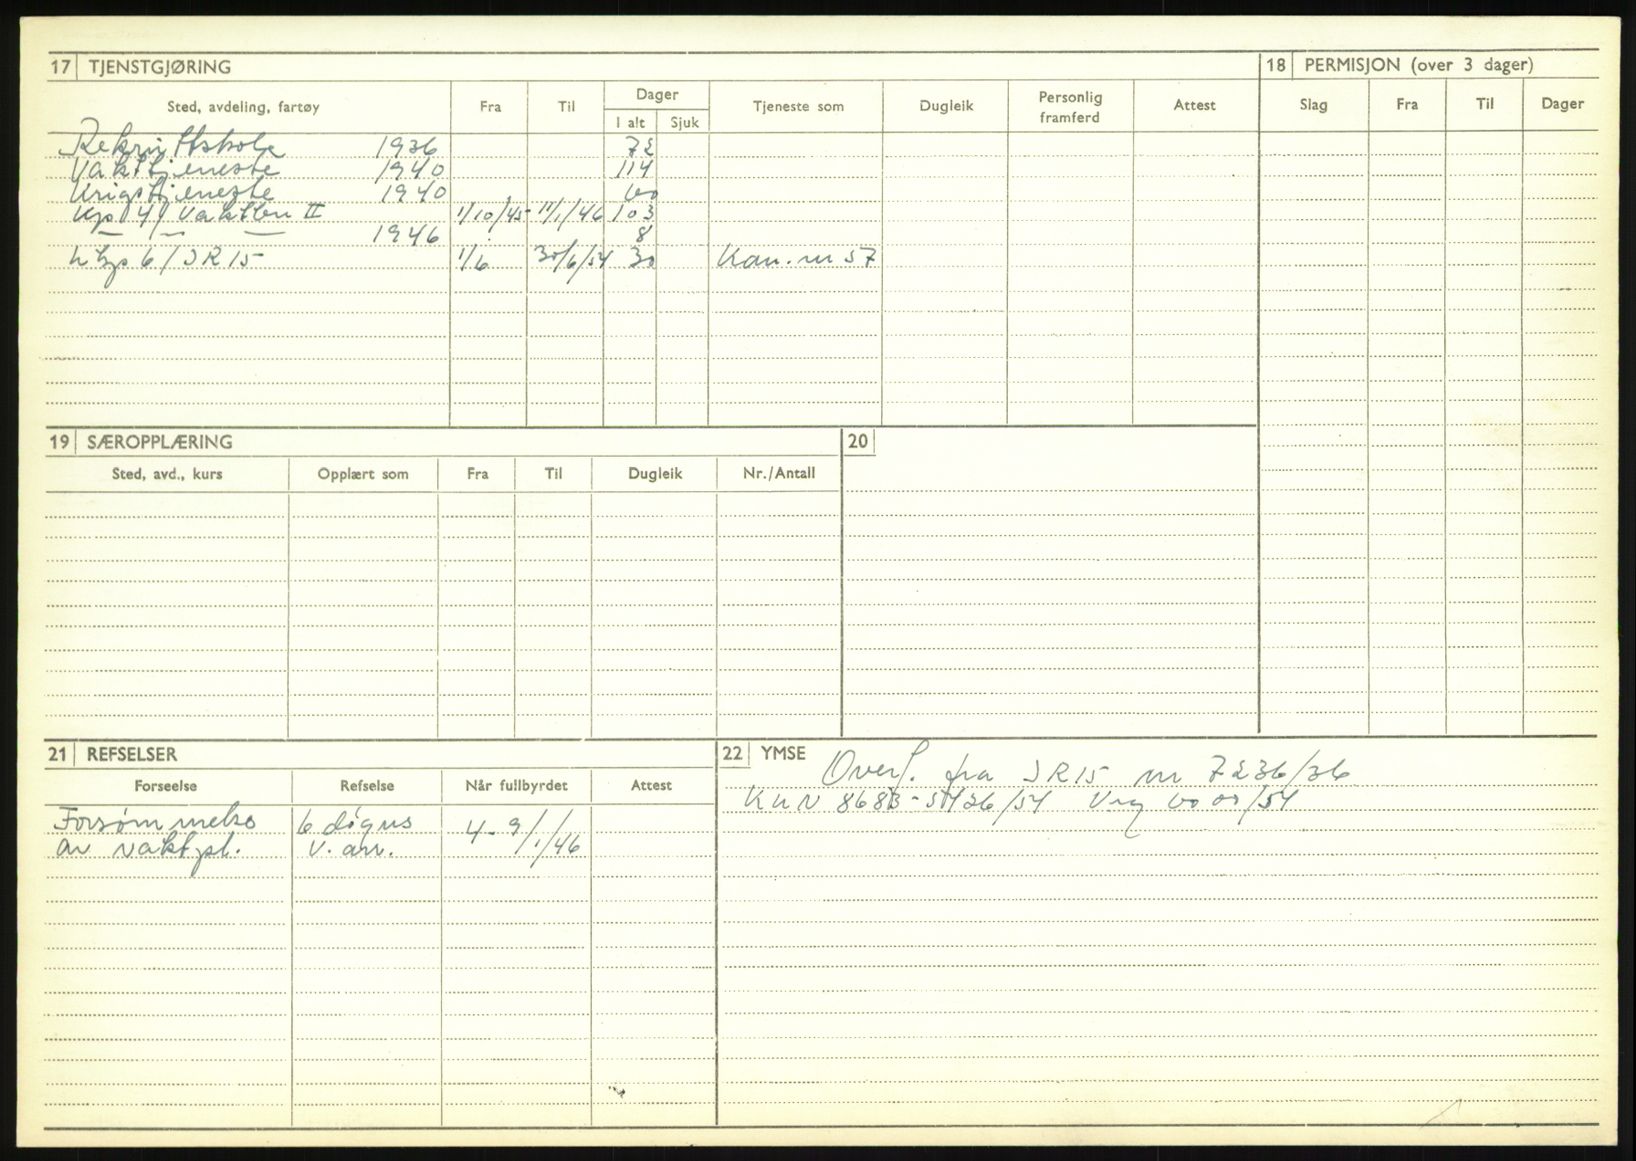 17 TJENSTGJØRING
Sted, avdeling, fartøy Fra Til Dager Tjeneste som Dugleik Personlig framferd Attest
I alt Sjuk
Rekruttskole 1936 72
Vakttjeneste 1940 114
Krigstjeneste 1940 60
Kp 4/Vaktbn II 1/10/45 11/1/46 103
— — — 1946 8
kp 6/IR15 1/6 30/6/54 30 Kan. m 57
18 PERMISJON (over 3 dager)
Slag Fra Til Dager
19 SÆROPPLÆRING
Sted, avd., kurs Opplært som Fra Til Dugleik Nr./Antall
20
21 REFSELSER
Forseelse Refselse Når fullbyrdet Attest
Forsømmelse 6 døgns 4-9/1/46
av vaktpl. v. arr.
22 YMSE
Overf. fra IR15 nr 7236/36